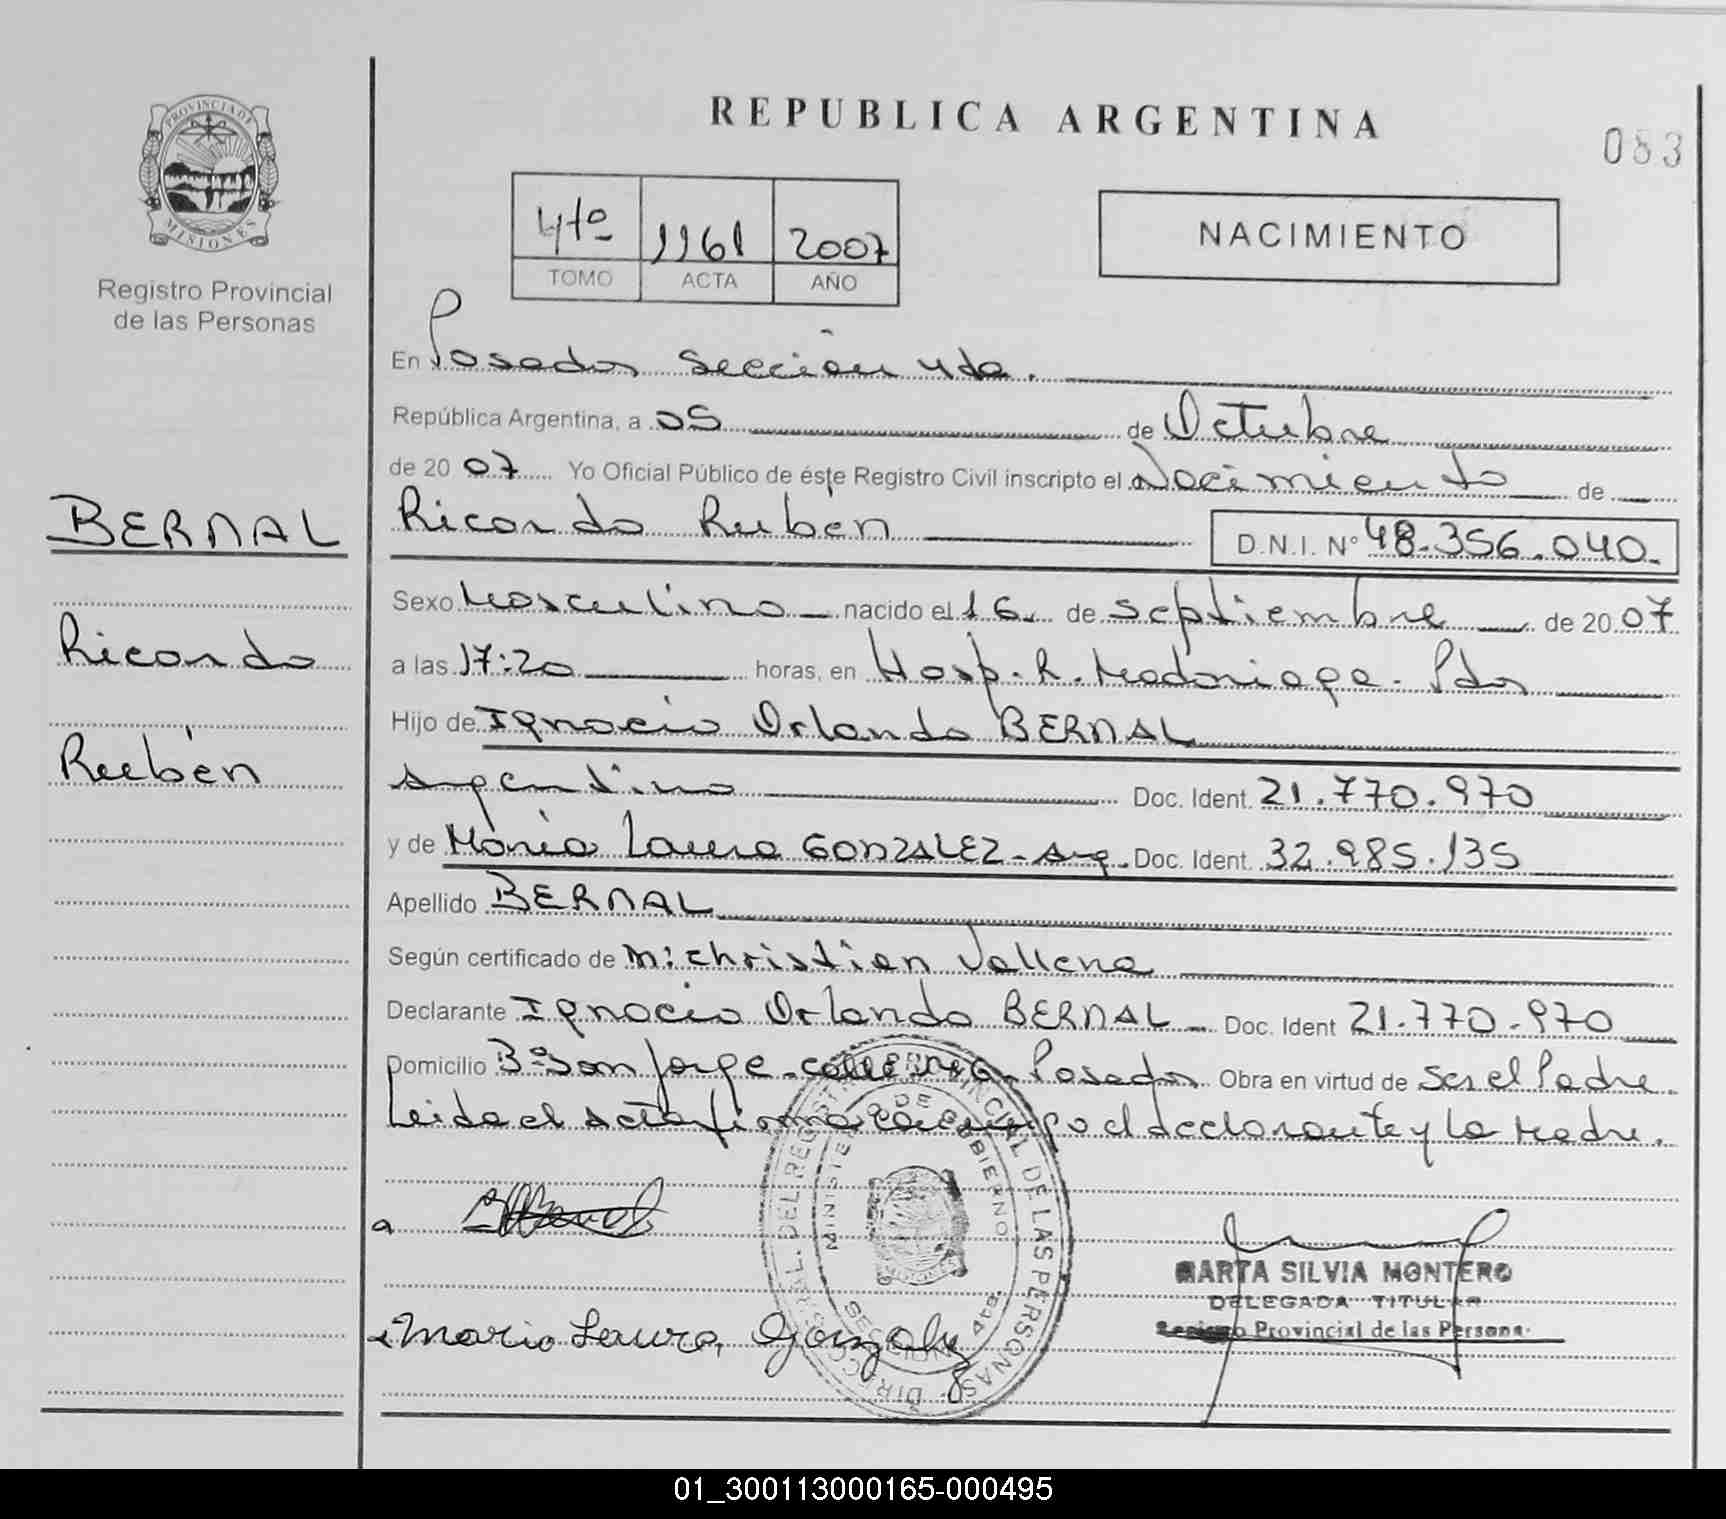 REPUBLICA ARGENTINA
083
PROVINCIA DE
MISIONES
Registro Provincial
de las Personas
4to 1161 2007
TOMO ACTA AÑO
NACIMIENTO
En Posadas Sección 4ta.
República Argentina, a 05 de Octubre
de 2007 Yo Oficial Público de éste Registro Civil inscripto el Nacimiento de
BERNAL
Ricardo Rubén D.N.I. Nº 48.356.040.
Sexo Masculino nacido el 16 de septiembre de 2007
Ricardo
a las 17:20 horas, en Hosp. R. Madariaga. Pdas
Hijo de Ignacio Orlando BERNAL
Rubén
Argentino Doc. Ident. 21.770.970
y de María Laura GONZALEZ - Arg. Doc. Ident. 32.985.135
Apellido BERNAL
Según certificado de M: Christian Vallena
Declarante Ignacio Orlando BERNAL Doc. Ident 21.770.970
Domicilio Bº San Jorge - calle Posadas Obra en virtud de ser el Padre.
Leida el Acta firma conmigo el declarante y la Madre.
DIRECCION GRAL. DEL REGISTRO PROVINCIAL DE LAS PERSONAS
MINISTERIO DE GOBIERNO
SECCION 4ta.
MARTA SILVIA MONTERO
DELEGADA TITULAR
Registro Provincial de las Personas
Maria Laura Gonzalez
01_300113000165-000495